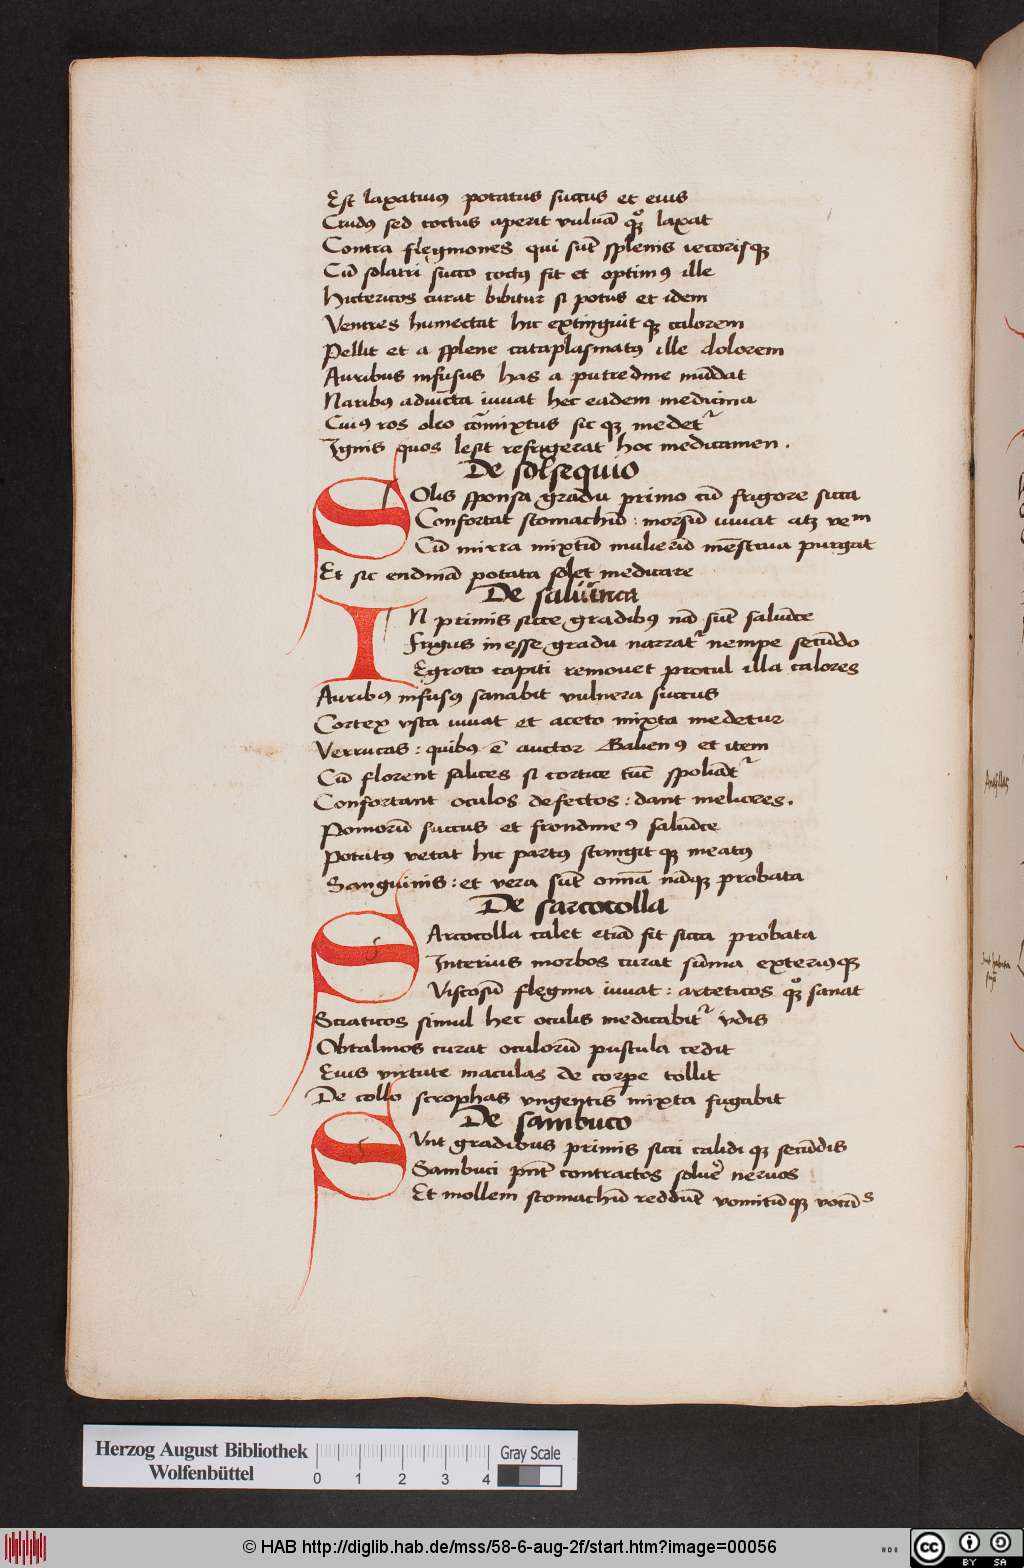 Est laxatiuꝰ potatus succus et eius
Crudꝰ sed coctus aperit vuluā qꝫ laxat
Contra flegmones qui sūt splenis iecorisqꝫ
Cū solatri succo coctꝰ sit et optimꝰ ille
Hictericos curat bibitur si potus et idem
Ventres humectat hic extinguit qꝫ calorem
Pellit et a splene cataplasmatꝰ ille dolorem
Auribus infusus has a putredine mūdat
Naribꝰ adiūcta iuuat hec eadem medicina
Cuiꝰ ros oleo cōmixtus sic qꝫ medetᷣ
Ignis quos lesit refrigerat hoc medicamen .
De solsequio
SOlis sponsa gradu primo cū frigore sicca
Confortat stomachū : morsū iuuat atꝫ
Cū mirra mixtū mulierū mēstrua purgat
Et sic endiniā potata solet medicare
De saliunca
IN primis sicce gradibꝰ nā sūt saliūce
Frigus inesse gradu narratᷣ nempe secūdo
Egroto capiti remouet procul illa calores
Auribꝰ infusꝰ sanabit vulnera succus
Cortex vsta iuuat et aceto mixta medetur
Verrucas : quibꝰ ē auctor Galienꝰ et item
Cū florent salices si cortice tūc spoliātᷣ
Confortant oculos defectos : dant meliores .
Pomorū succus et frondineꝰ saliūce
Potatꝰ vetat hic partꝰ stringit qꝫ meatꝰ
Sanguinis : et vera sūt omīa nāqꝫ probata
De sarcocolla
SArcocolla calet etiā sit sicca probata
Interius morbos curat sūma exteriusqꝫ
Viscosū flegma iuuat : arteticos qꝫ sanat
Sciaticos simul hec oculis medicabitᷣ vdis
Obtalmos curat oculorū pustula cedit
Eius virtute maculas de corpe tollit
De collo scrophas vngentis mixta fugabit
De sambuco
SVnt gradibus primis sicci calidi qꝫ secūdis
Sambuci pn̄t contractos soluēͬ neruos
Et mollem stomachū reddūt vomitūqꝫ
Herzog August Bibliothek
Wolfenbüttel
0 1 2 3 4
Gray Scale
© HAB http://diglib.hab.de/mss/58-6-aug-2f/start.htm?image=00056
cc BY SA